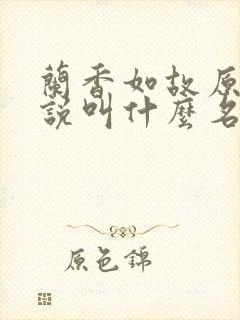 蘭香如故原
說叫什麼名
原色錦